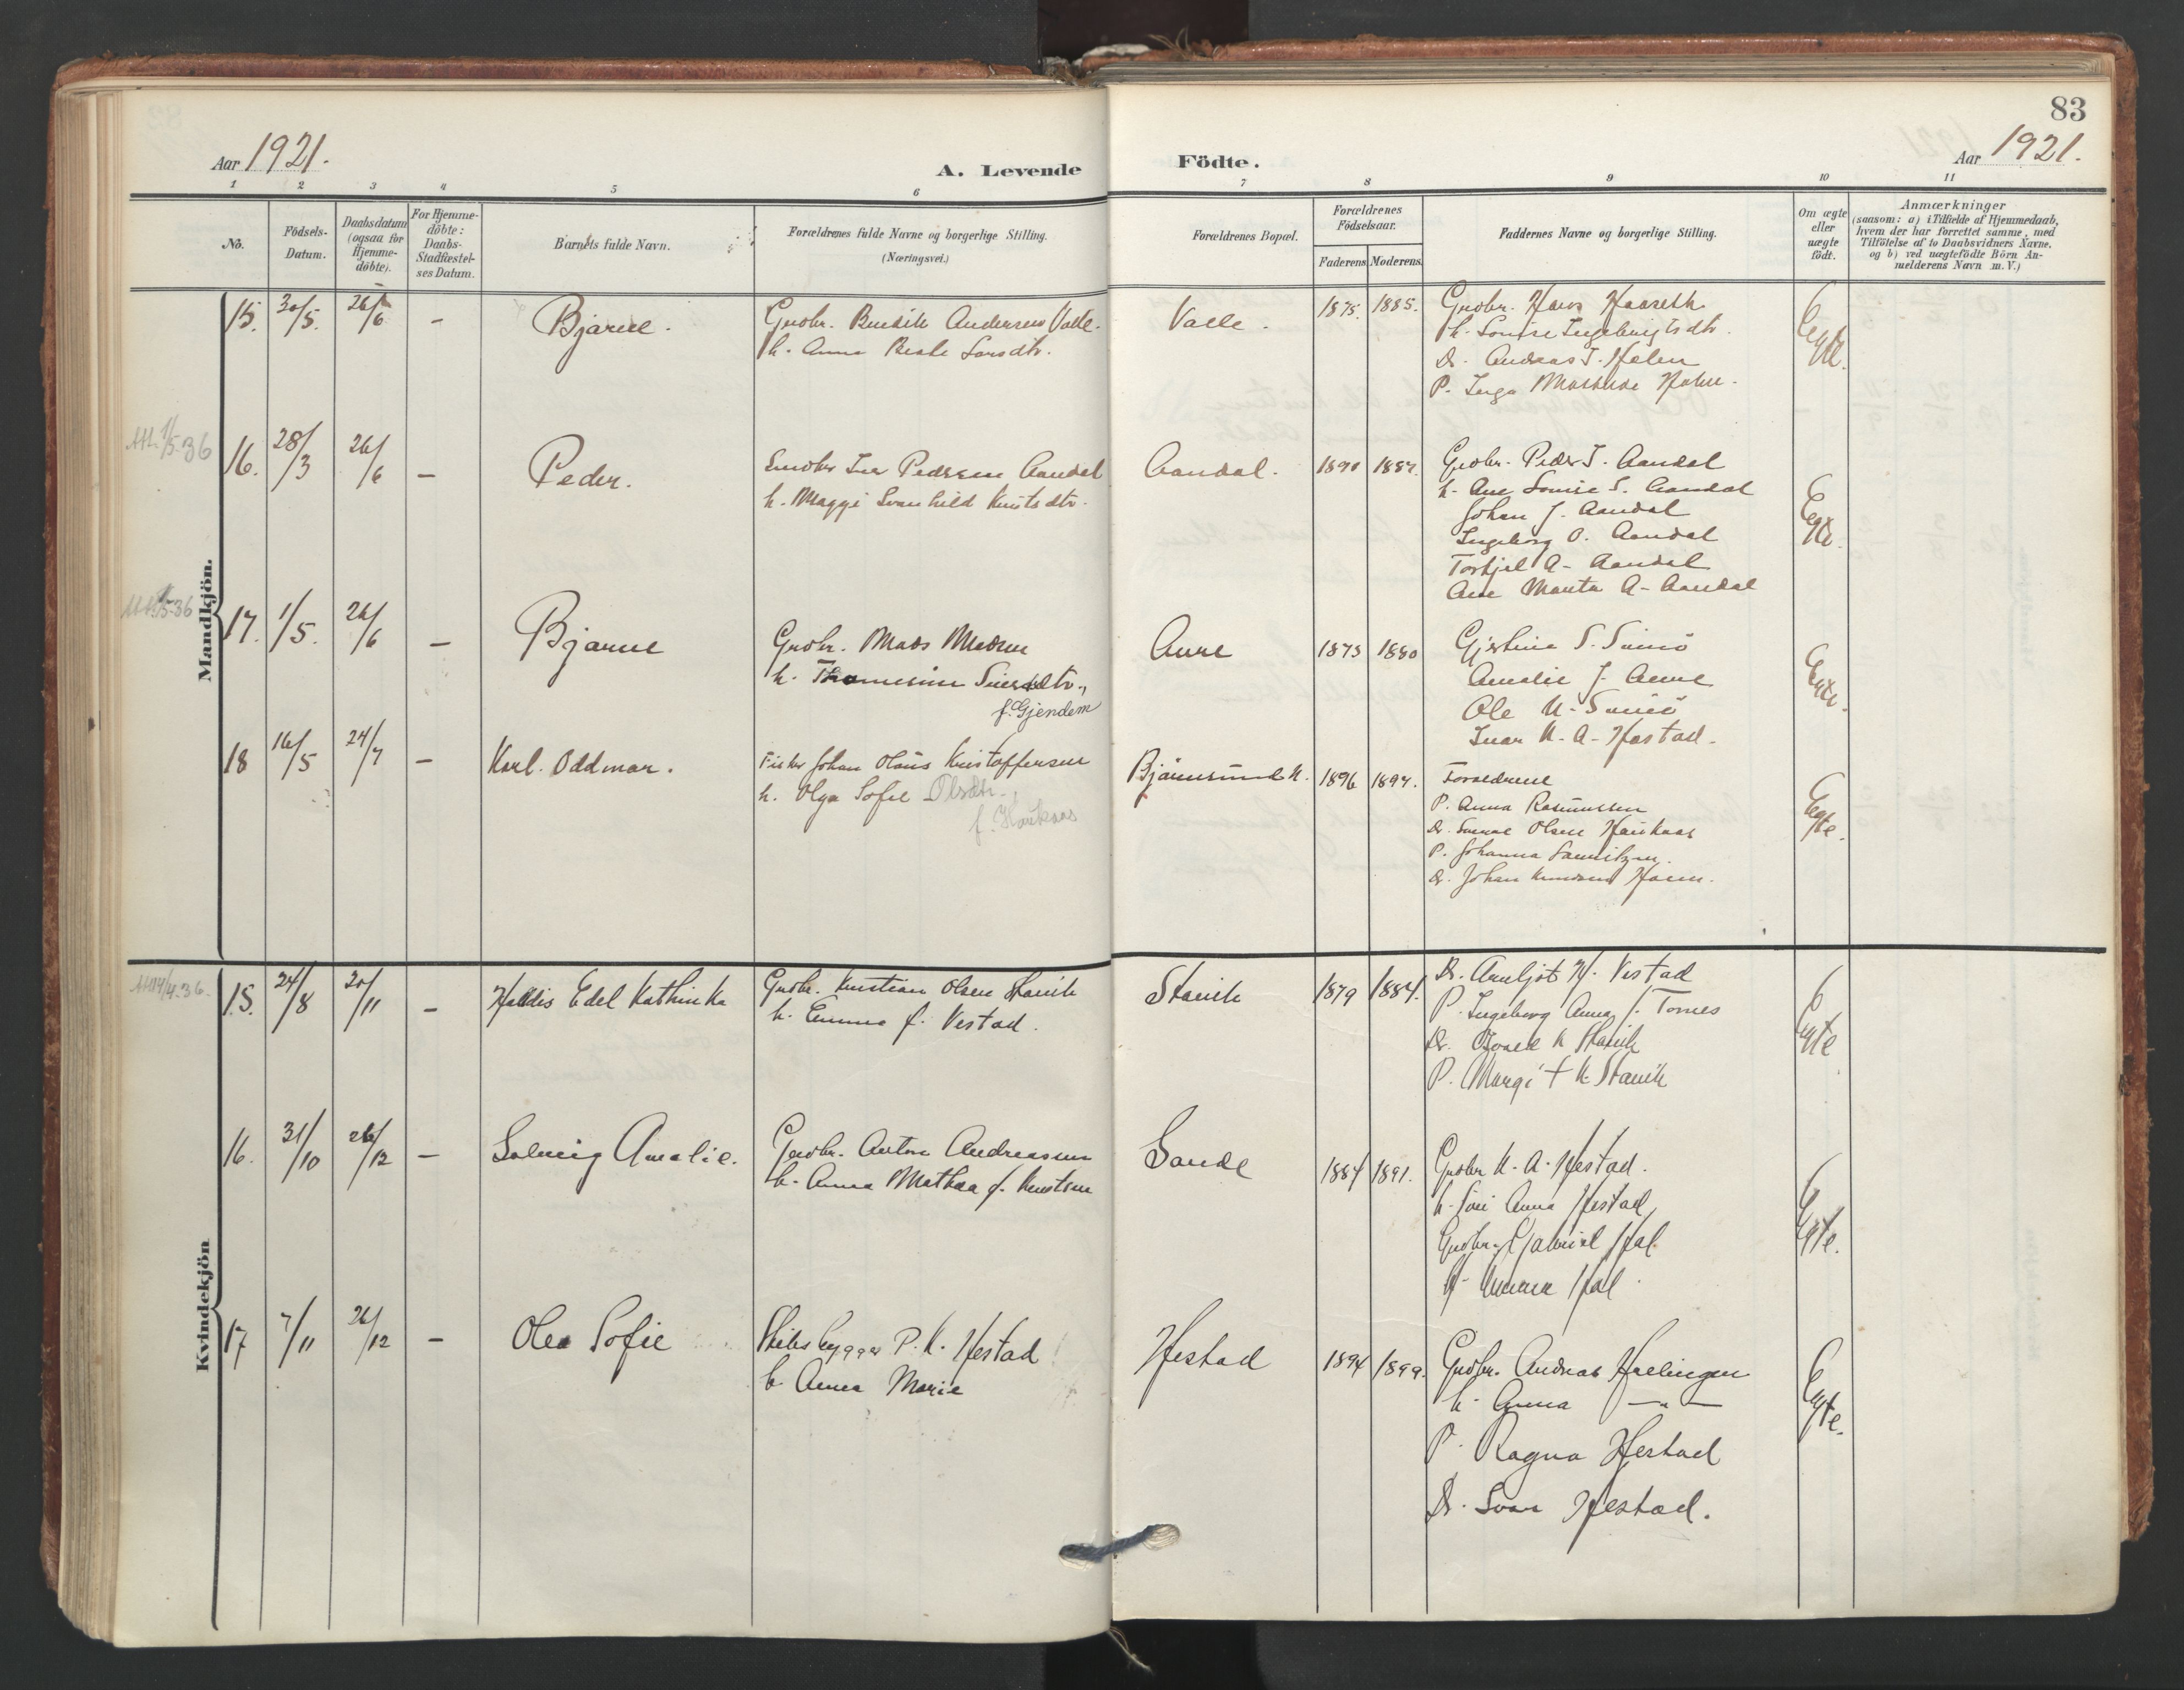 83
Aar 1921.
A. Levende
Födte.
Aar 1921.
1 2 3 4 5 6 7 8 9 10 11
No.
Födsels-
Datum.
Daabsdatum
(ogsaa for
Hjemme-
döbte).
For Hjemme-
döbte:
Daabs-
Stadfæstel-
ses Datum.
Barnets fulde Navn.
Forældrenes fulde Navne og borgerlige Stilling.
(Næringsvei.)
Forældrenes Bopæl.
Forældrenes
Födselsaar.
Faderens Moderens.
Faddernes Navne og borgerlige Stilling.
Om ægte
eller
uægte
födt.
Anmærkninger
(saasom: a) i Tilfælde af Hjemmedaab,
hvem der har forrettet samme, med
Tilföielse af to Daabsvidners Navne.
og b) ved uægtefödte Börn An-
melderens Navn m. V.)
Mandkjön.
15. 30/5. 26/6 - Bjarne.
Grdbr. Andersen Valle.
h. Anna Beate Larsdtr.
Valle. 1875. 1885.
Grdbr. Hans
h. Louise
D. Andreas J.
P. Inga
Egte.
1/5-36
16. 28/3 26/6 - Peder.
Iver Pedersen Aandal
h. Maggi Svanhild Knutsdtr.
Aandal. 1890 1887.
Grdbr. Peder J. Aandal
h. Ane Louise S. Aandal
Johan J. Aandal
Ingeborg O. Aandal
Torkjel A- Aandal
Ane Marta A- Aandal
Egte.
1/5-36
17. 1/5. 26/6 - Bjarne
Grdbr. Mads Madsen
h. Thomesine
f. Gjendem
Aure 1873 1880
Gjertine S.
Amalie J. Aure
Ole K.
Ivar K. A. Hostad.
Egte.
18 16/5 24/7 - Karl. Oddmar.
Fisker Johan Olaus Kristoffersen
h. Olga Sofie Olsdtr.,
f. Haukaas
Bjørnsund N. 1896 1897.
Forældrene
P. Anna Rasmussen
D. Olsen Haukaas
P. Johanna
D. Johan Knudsen
Egte.
Kvindekjön
14/4-36.
15. 24/8 20/11 - Haldis Edel Kathinka
Grdbr. Kristian Olsen Stavik
h. Emma f. Vestad.
Stavik 1879 1884.
D. Arnljot H. Vestad
P. Ingeborg Anna J. Tornes
D. K Stavik
P. Margit K. Stavik
Egte
16. 31/10 26/12 - Solveig Amalie.
Grdbr. Anton Andreassen
h. Anna Mathea f. Knutsen
Sande 1884 1891.
Grdbr K. A. Hestad.
h. Anna Hestad
Grdbr. Gabriel Hol
h. Hol
Egte.
17 7/11 26/12 - Olea Sofie
Skibsbygger P. K. Hestad
h Anna Marie
Hestad 1894 1899.
Grdbr. Andreas
h. Anna —"—
P. Ragna Hestad
D. Hestad.
Egte.